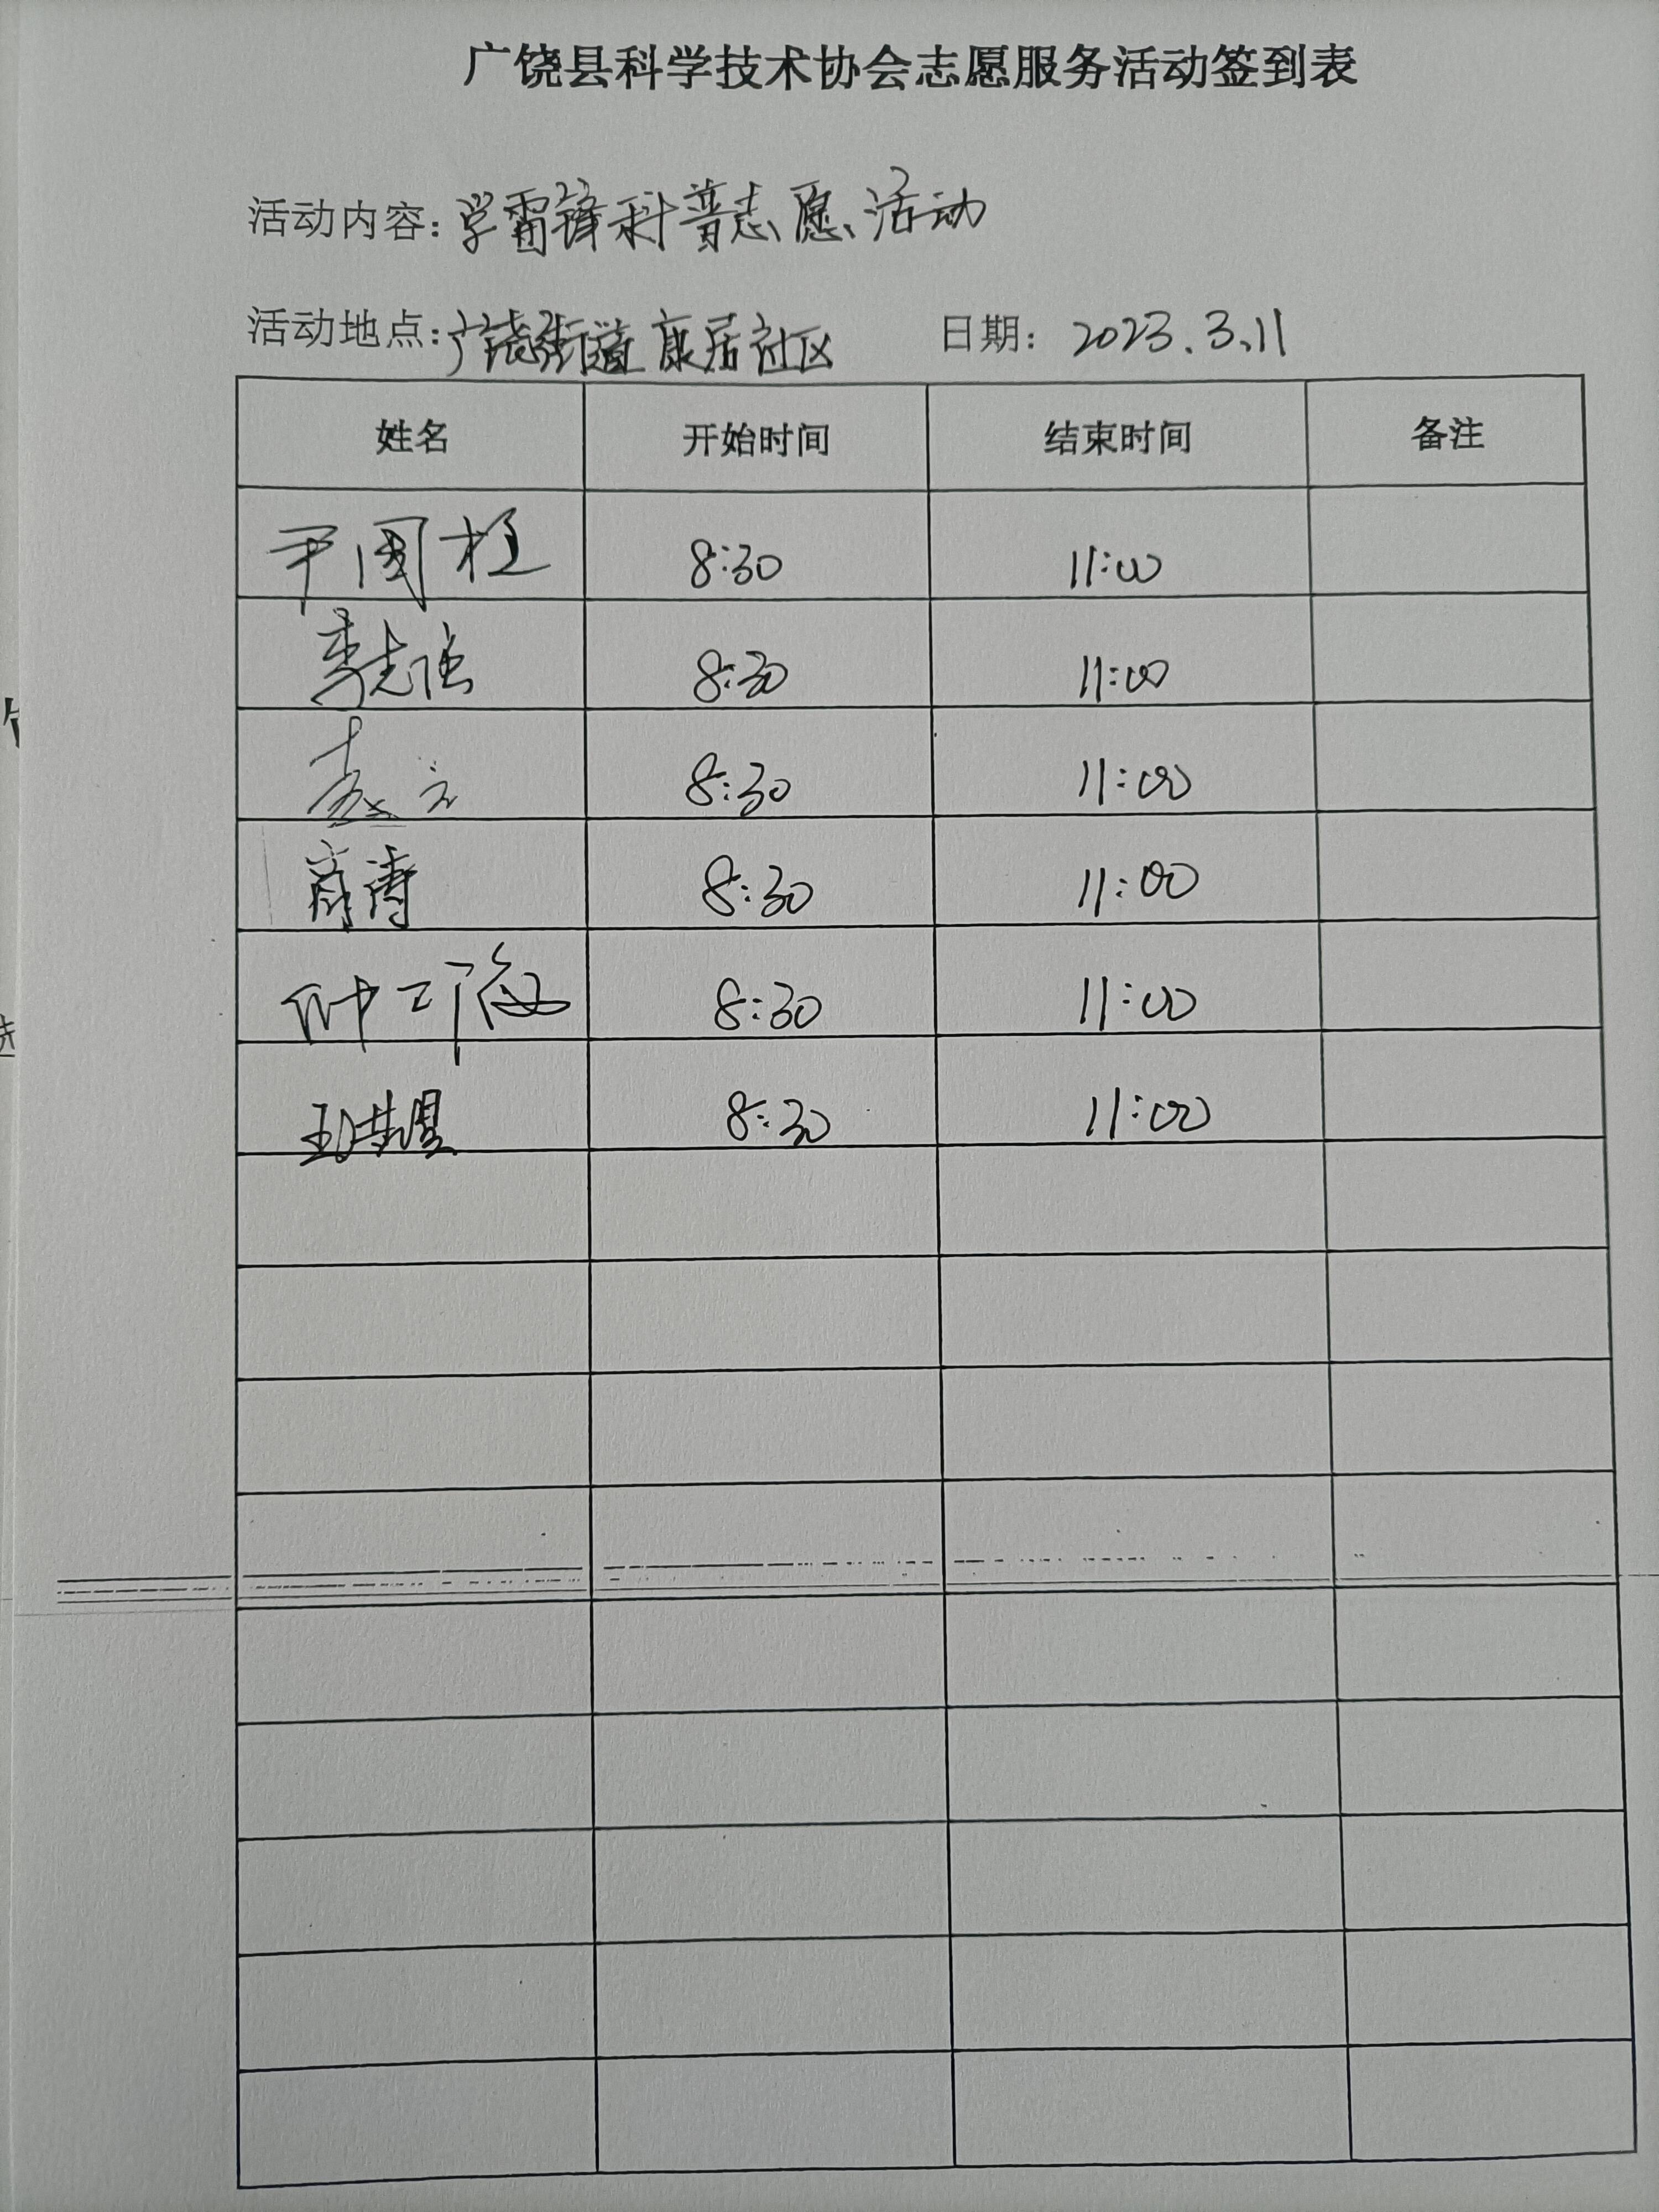 广饶县科学技术协会志愿服务活动签到表
活动内容：学雷锋科普志愿活动
活动地点：广饶街道康居社区 日期：2023.3.11
姓名 开始时间 结束时间 备注
尹国柱 8:30 11:00
李志强 8:30 11:00
8:30 11:00
肖涛 8:30 11:00
8:30 11:00
8:30 11:00